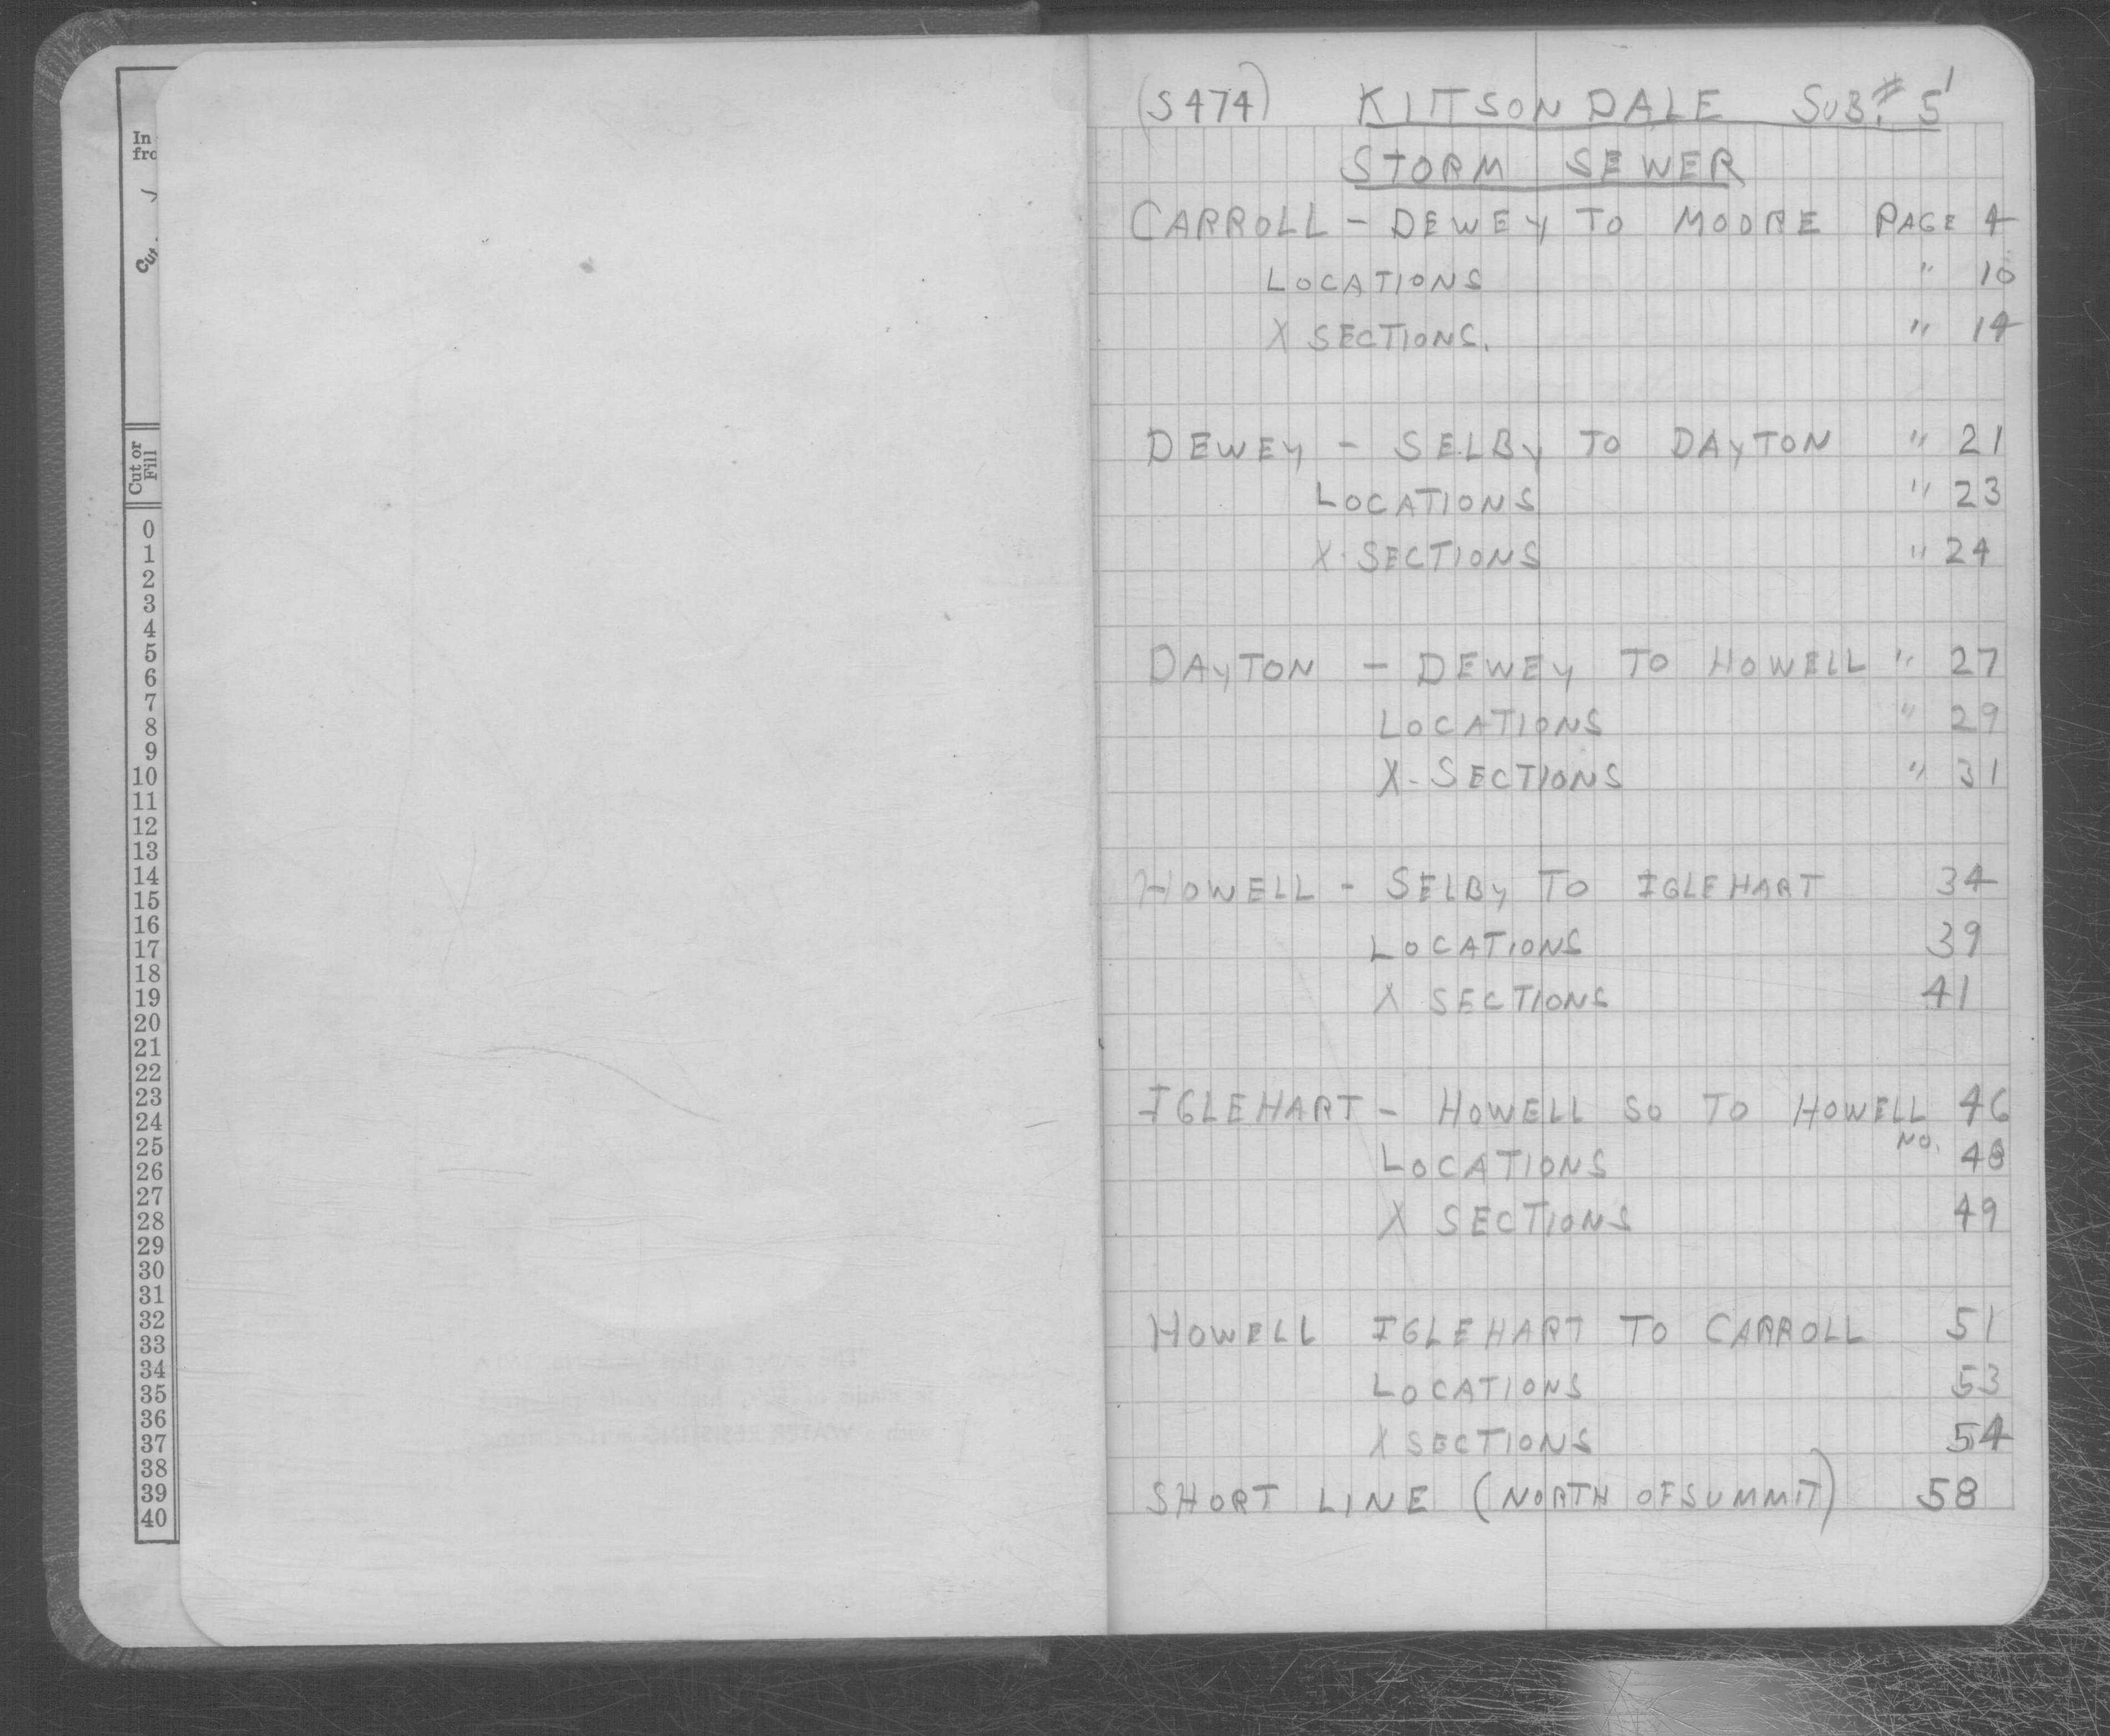 In
fro
Cut or
Fill
0
1
2
3
4
5
6
7
8
9
10
11
12
13
14
15
16
17
18
19
20
21
22
23
24
25
26
27
28
29
30
31
32
33
34
35
36
37
38
39
40
(S474) KITTSONDALE SUB. # 5
STORM SEWER
CARROLL - DEWEY TO MOORE PAGE 4
LOCATIONS " 10
X SECTIONS. " 14
DEWEY - SELBY TO DAYTON " 21
LOCATIONS " 23
X-SECTIONS " 24
DAYTON - DEWEY TO HOWELL " 27
LOCATIONS " 29
X-SECTIONS " 31
HOWELL - SELBY TO IGLEHART 34
LOCATIONS 39
X SECTIONS 41
IGLEHART - HOWELL SO TO HOWELL NO. 46
LOCATIONS 48
X SECTIONS 49
HOWELL IGLEHART TO CARROLL 51
LOCATIONS 53
X SECTIONS 54
SHORT LINE (NORTH OF SUMMIT) 58